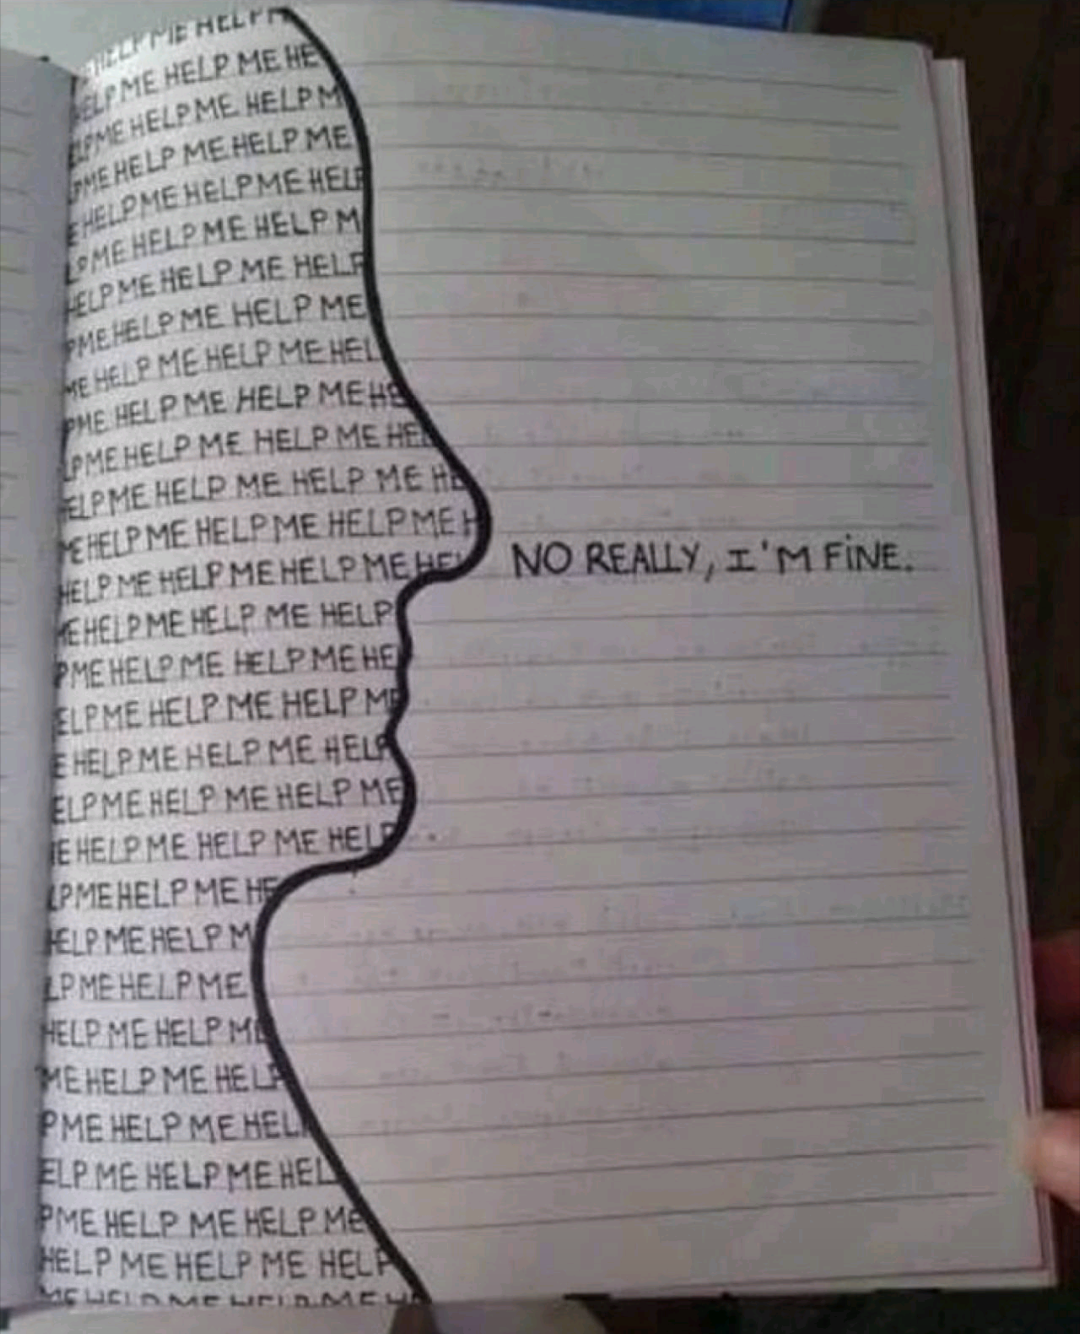 HELP ME HELP M
HELP ME HELP ME HE
LP ME HELP ME HELP M
P ME HELP ME HELP ME
E HELP ME HELP ME HELP
LP ME HELP ME HELP M
HELP ME HELP ME HELP
P ME HELP ME HELP ME
ME HELP ME HELP ME HEL
P ME HELP ME HELP ME HE
LP ME HELP ME HELP ME HEL
ELP ME HELP ME HELP ME HE
ME HELP ME HELP ME HELP ME H
HELP ME HELP ME HELP ME HEL
NO REALLY, I'M FiNE.
ME HELP ME HELP ME HELP
P ME HELP ME HELP ME HE
ELP ME HELP ME HELP ME
E HELP ME HELP ME HELP
ELP ME HELP ME HELP ME
E HELP ME HELP ME HELP
LP ME HELP ME HE
HELP ME HELP M
LP ME HELP ME
HELP ME HELP ME
ME HELP ME HELP
P ME HELP ME HEL
ELP ME HELP ME HEL
P ME HELP ME HELP ME
HELP ME HELP ME HELP
ME HELP ME HELP ME HE